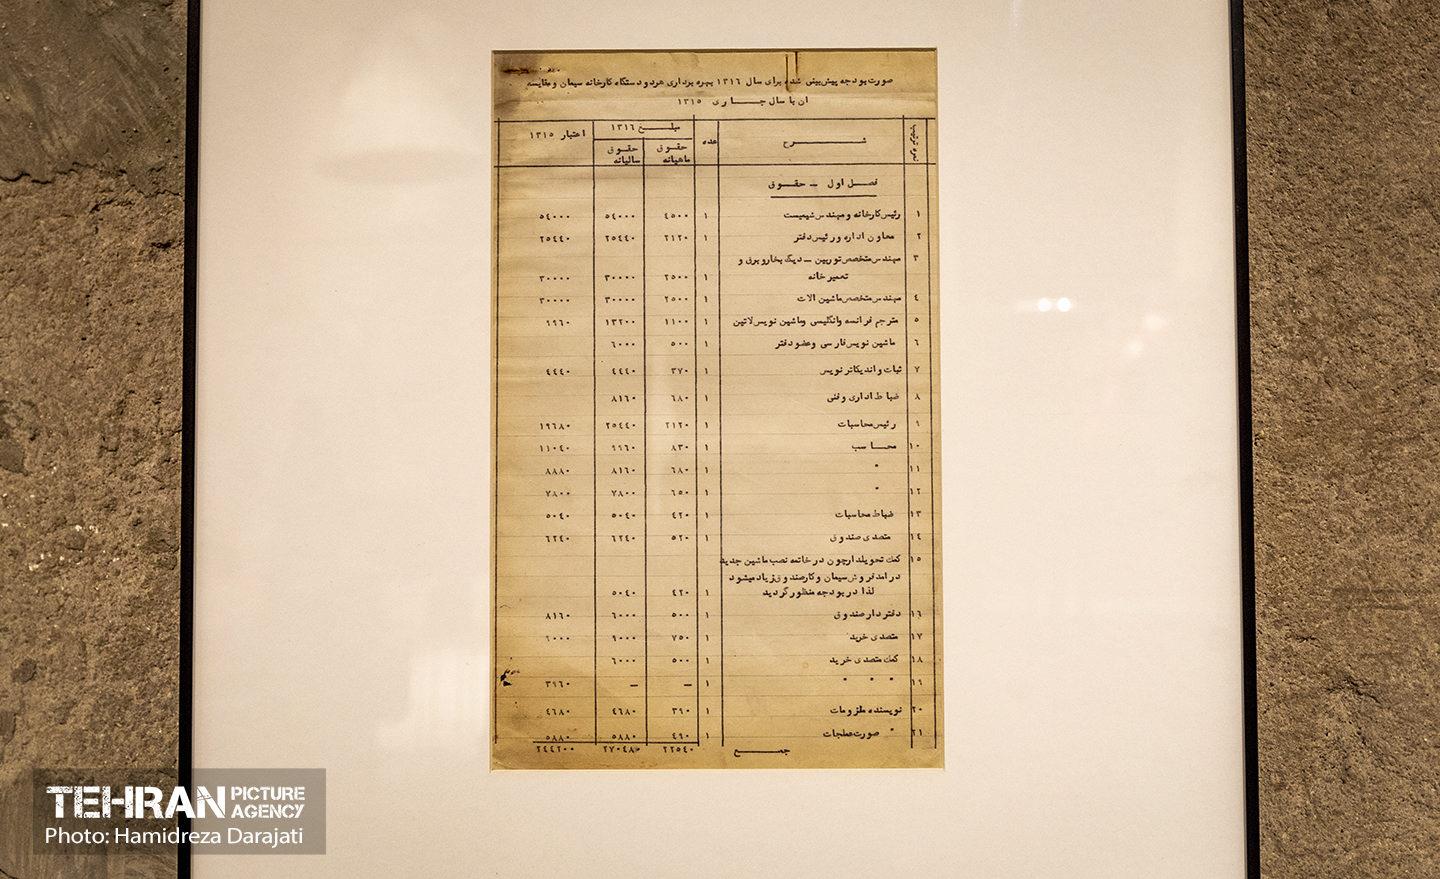 صورت بودجه پیش بینی شده برای سال ۱۳۱۶ بهره برداری هردو دستگاه کارخانه سیمان و مقایسه
ان با سال جاری ۱۳۱۵
نمره ترتیب شرح عده مبلغ ۱۳۱۶ اعتبار ۱۳۱۵
حقوق ماهیانه حقوق سالیانه
فصل اول - حقوق
۱ رئیس کارخانه و مهندس شیمیست ۱ ۴۵۰۰ ۵۴۰۰۰ ۵۴۰۰۰
۲ معاون اداره و رئیس دفتر ۱ ۲۱۲۰ ۲۵۴۴۰ ۲۵۴۴۰
۳ مهندس متخصص توربین - دیگ بخار و برق و
تعمیر خانه ۱ ۲۵۰۰ ۳۰۰۰۰ ۳۰۰۰۰
۴ مهندس متخصص ماشین الات ۱ ۲۵۰۰ ۳۰۰۰۰ ۳۰۰۰۰
۵ مترجم فرانسه وانگلیسی وماشین نویس لاتین ۱ ۱۱۰۰ ۱۳۲۰۰ ۹۹۶۰
۶ ماشین نویس فارسی وعضو دفتر ۱ ۵۰۰ ۶۰۰۰
۷ ثبات و اندیکاتر نویس ۱ ۳۷۰ ۴۴۴۰ ۴۴۴۰
۸ ضباط اداری و فنی ۱ ۶۸۰ ۸۱۶۰
۹ رئیس محاسبات ۱ ۲۱۲۰ ۲۵۴۴۰ ۱۹۶۸۰
۱۰ محاسب ۱ ۸۳۰ ۹۹۶۰ ۱۱۰۴۰
۱۱ " ۱ ۶۸۰ ۸۱۶۰ ۸۸۸۰
۱۲ " ۱ ۶۵۰ ۷۸۰۰ ۷۸۰۰
۱۳ ضباط محاسبات ۱ ۴۲۰ ۵۰۴۰ ۵۰۴۰
۱۴ متصدی صندوق ۱ ۵۲۰ ۶۲۴۰ ۶۲۴۰
۱۵ کمک تحویلدار چون در خاتمه نصب ماشین جدید
درامد فروش سیمان و کار صندوق زیاد میشود
لذا در بودجه منظور گردید ۱ ۴۲۰ ۵۰۴۰
۱۶ دفتر دار صندوق ۱ ۵۰۰ ۶۰۰۰ ۸۱۶۰
۱۷ متصدی خرید ۱ ۷۵۰ ۹۰۰۰
۱۸ کمک متصدی خرید ۱ ۵۰۰ ۶۰۰۰
۱۹ " " " ۱ - - ۳۹۶۰
۲۰ نویسنده ملزومات ۱ ۳۹۰ ۴۶۸۰ ۴۶۸۰
۲۱ " صورت عملجات ۱ ۴۹۰ ۵۸۸۰ ۵۸۸۰
جمع ۲۲۵۴۰ ۲۷۰۴۸۰ ۲۴۴۲۰۰
TEHRAN PICTURE AGENCY
Photo: Hamidreza Darajati